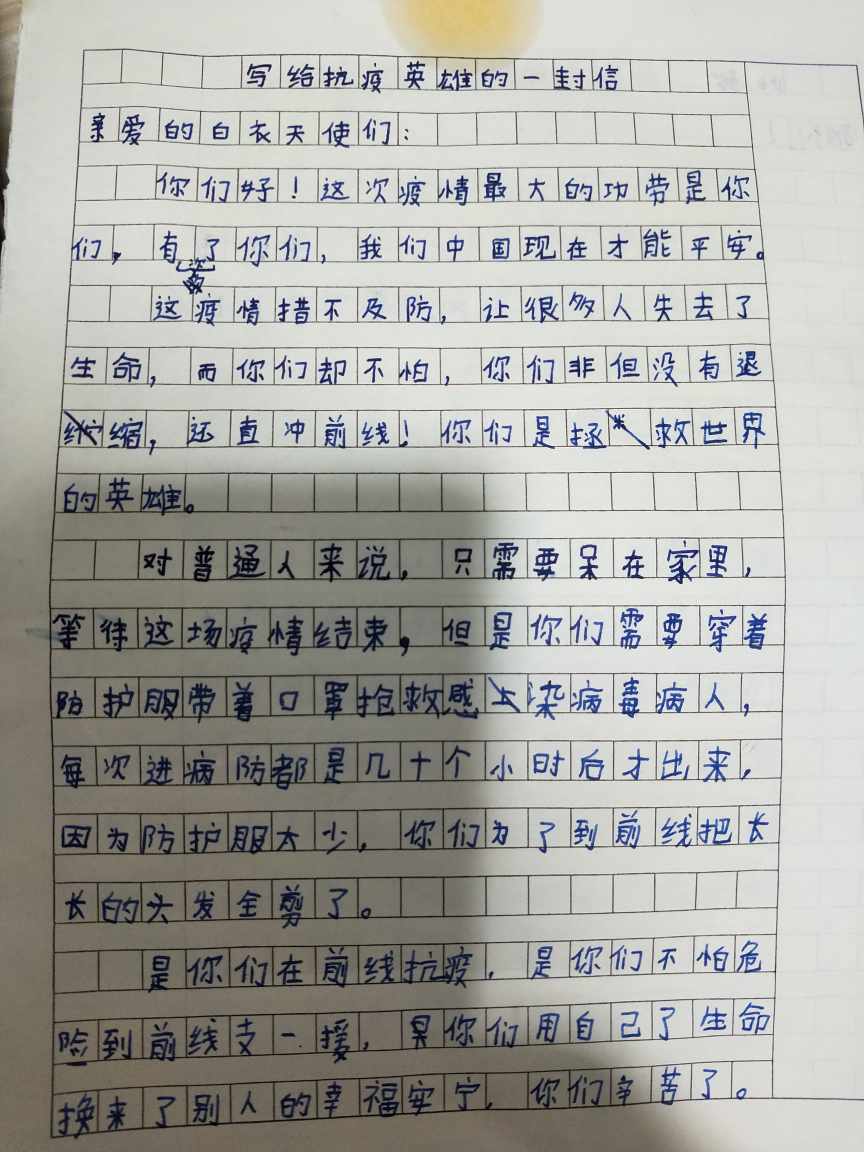 写给抗疫英雄的一封信
亲爱的白衣天使们：
你们好！这次疫情最大的功劳是你
们，有了你们，我们中国现在才能平安。
这次疫情措不及防，让很多人失去了
生命，而你们却不怕，你们非但没有退
缩，还直冲前线！你们是拯救世界
的英雄。
对普通人来说，只需要呆在家里，
等待这场疫情结束，但是你们需要穿着
防护服带着口罩抢救感染病毒病人，
每次进病防都是几十个小时后才出来，
因为防护服太少，你们为了到前线把长
长的头发全剪了。
是你们在前线抗疫，是你们不怕危
险到前线支一援，是你们用自己了生命
换来了别人的幸福安宁，你们辛苦了。